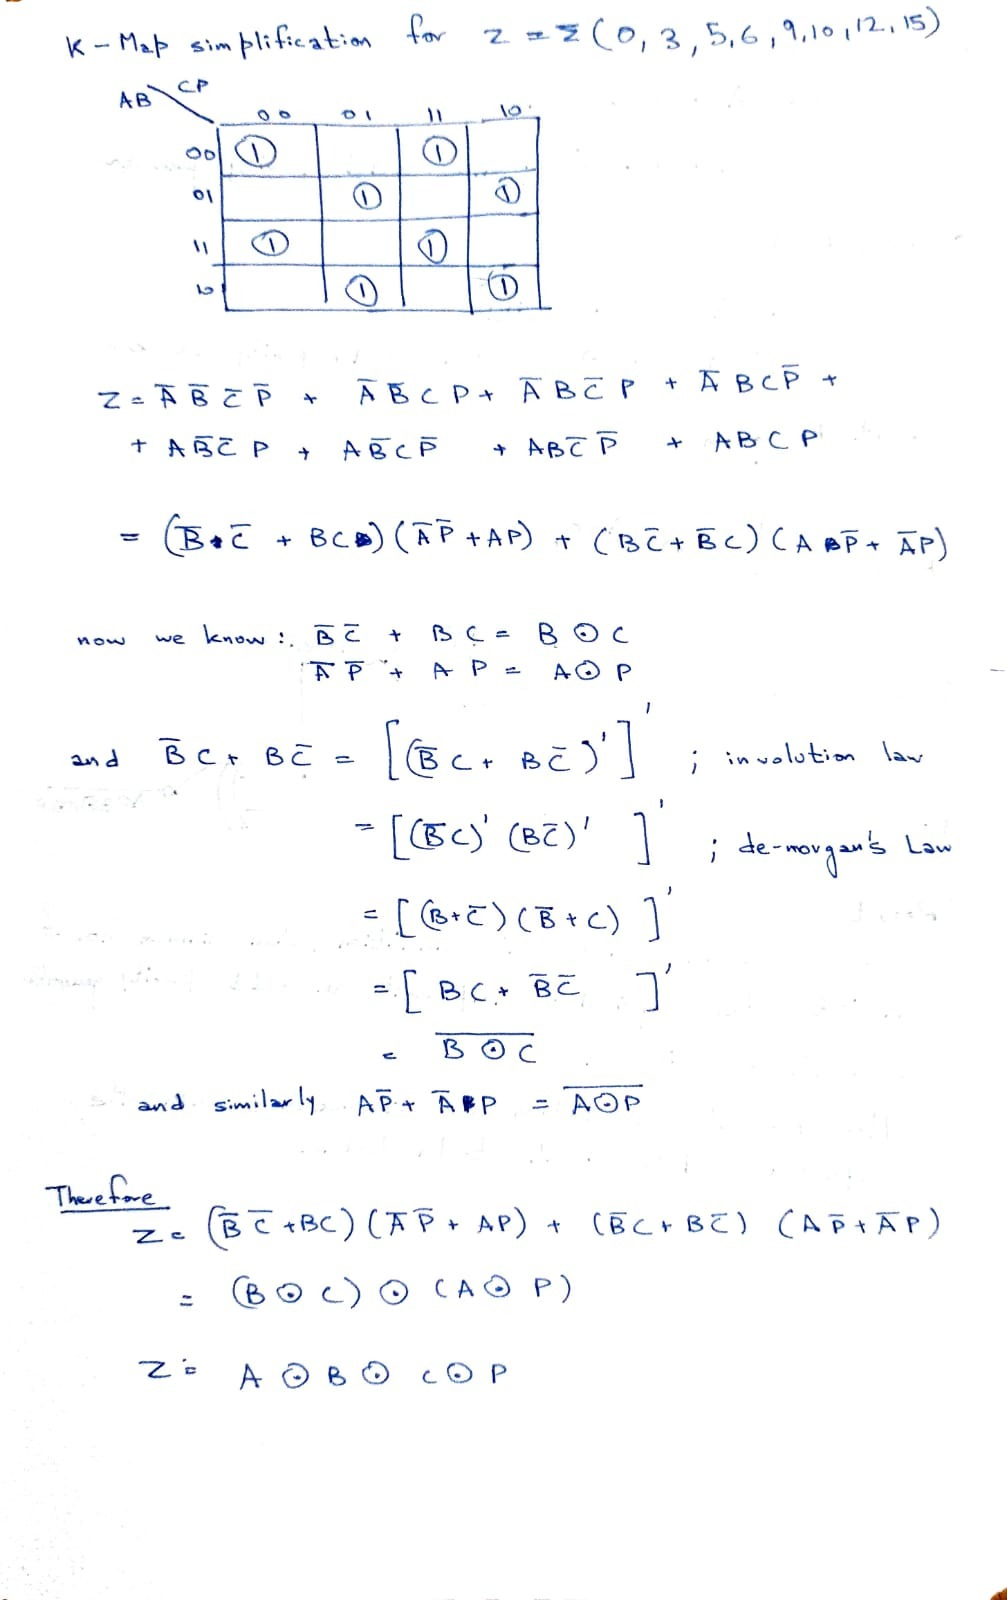 K - Map simplification for z = Σ (0, 3, 5, 6, 9, 10, 12, 15)
AB \ CP
00 01 11 10
00 1 1
01 1 1
11 1 1
10 1 1
Z = A̅ B̅ C̅ P̅ + A̅ B̅ C P + A̅ B C̅ P + A̅ B C P̅ +
+ A B̅ C̅ P + A B̅ C P̅ + A B C̅ P̅ + A B C P
= (B̅ • C̅ + B C) (A̅ P̅ + A P) + (B C̅ + B̅ C) (A P̅ + A̅ P)
now we know : B̅ C̅ + B C = B ⊙ C
A̅ P̅ + A P = A ⊙ P
and B̅ C + B C̅ = [(B̅ C + B C̅)']' ; involution law
= [(B̅ C)' (B C̅)']' ; de-morgan's Law
= [(B + C̅) (B̅ + C)]'
= [B C + B̅ C̅]'
= \overline{B ⊙ C}
and similarly A P̅ + A̅ P = \overline{A ⊙ P}
Therefore
Z = (B̅ C̅ + B C) (A̅ P̅ + A P) + (B̅ C + B C̅) (A P̅ + A̅ P)
= (B ⊙ C) ⊙ (A ⊙ P)
Z = A ⊙ B ⊙ C ⊙ P